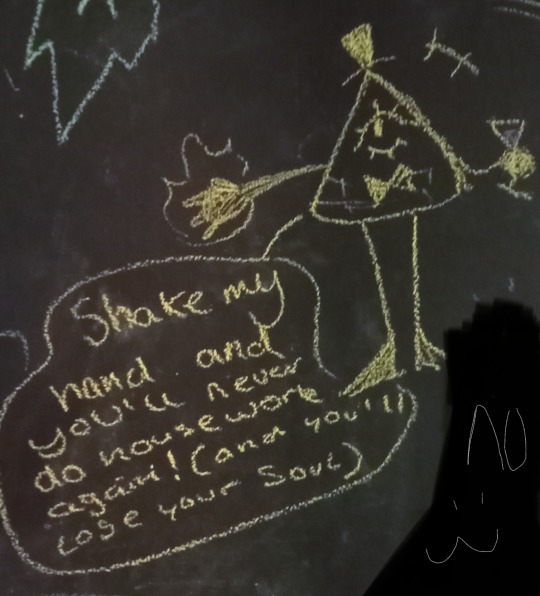 Shake my
hand and
you'll never
do housework
again! (and you'll
lose your soul)
NO